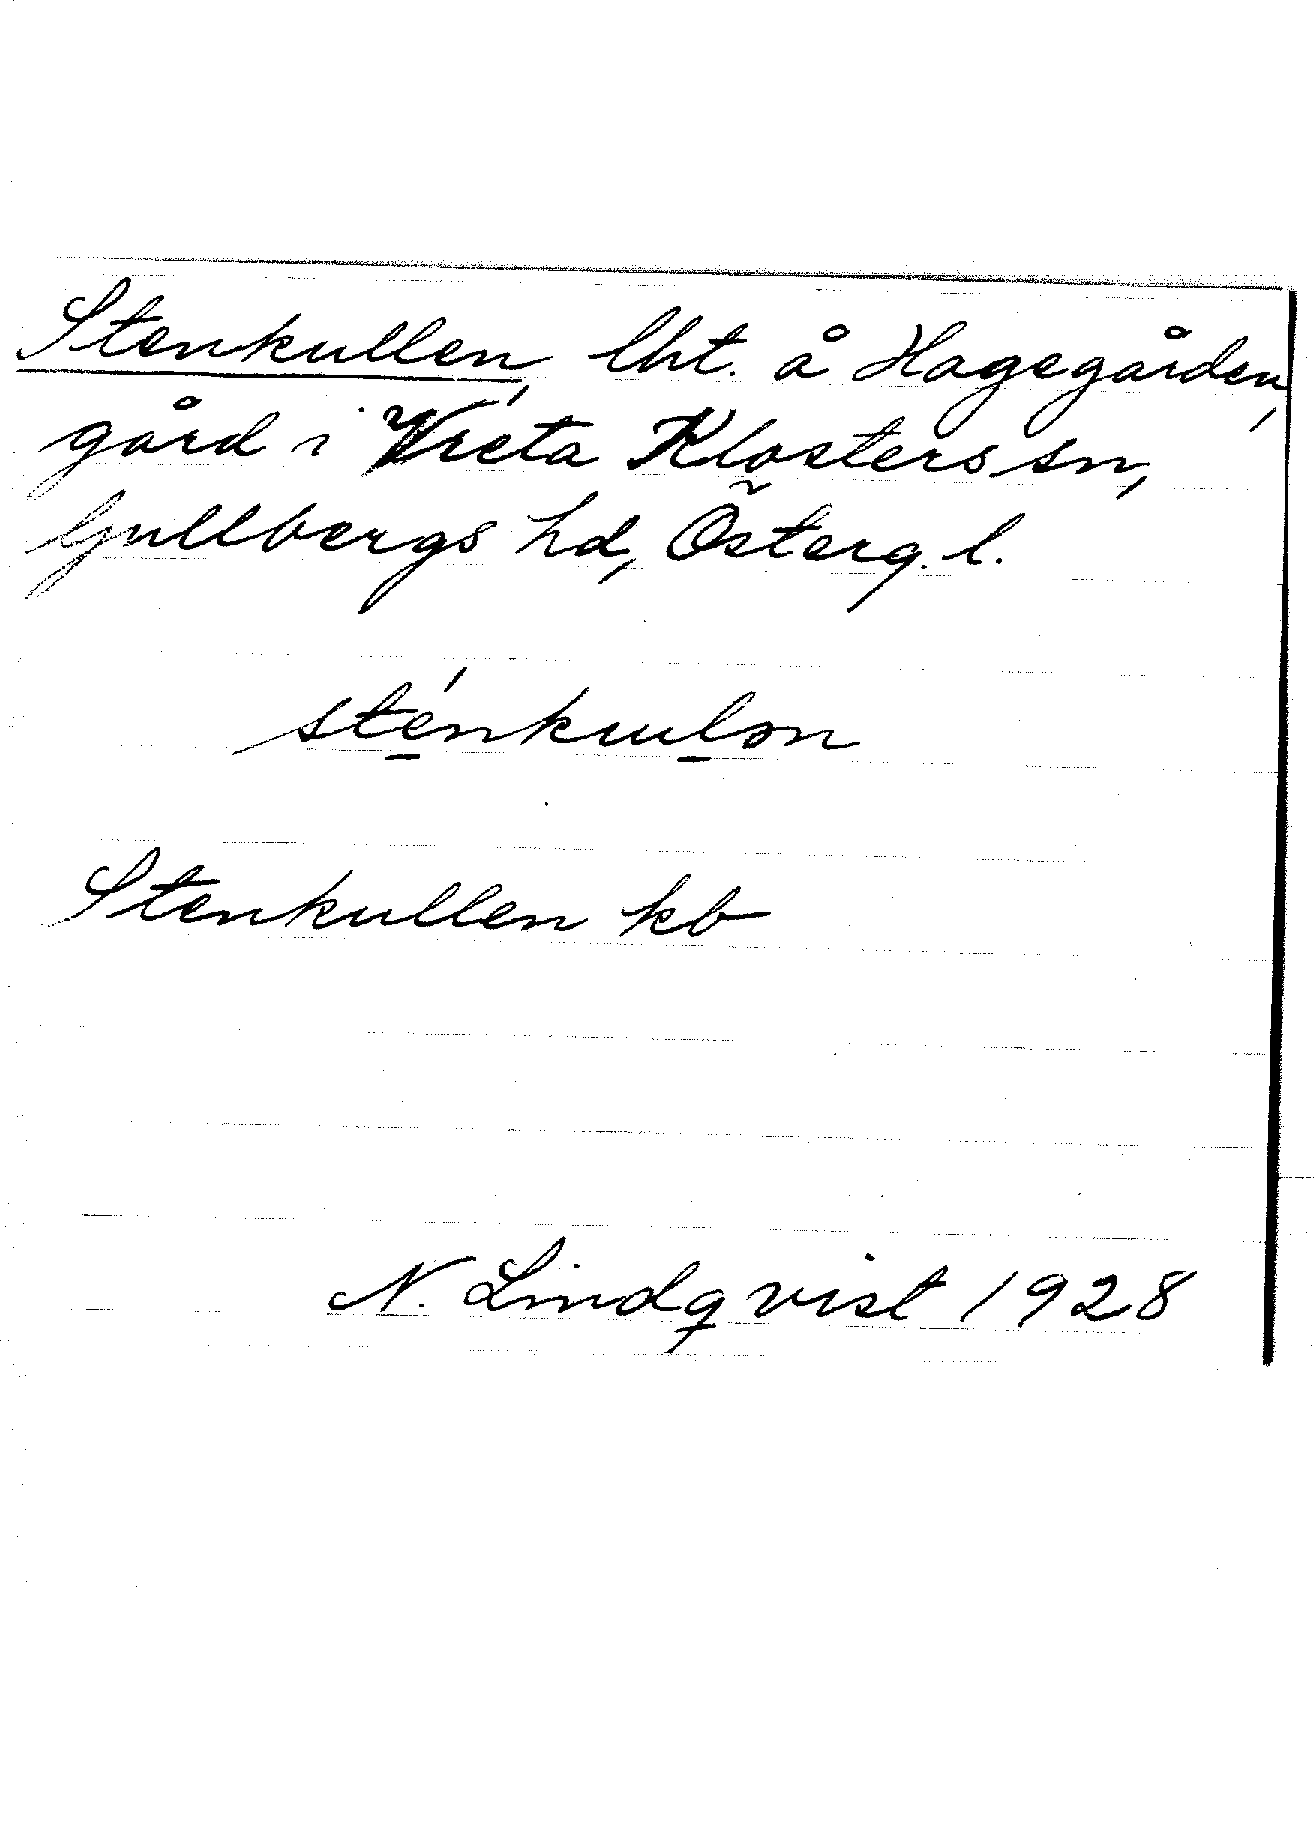 Stenkullen, lht. å Hagegården,
gård i Vreta Klosters sn,
Gullbergs hd, Österg. l.
sténkulən
Stenkullen kb
N. Lindqvist 1928